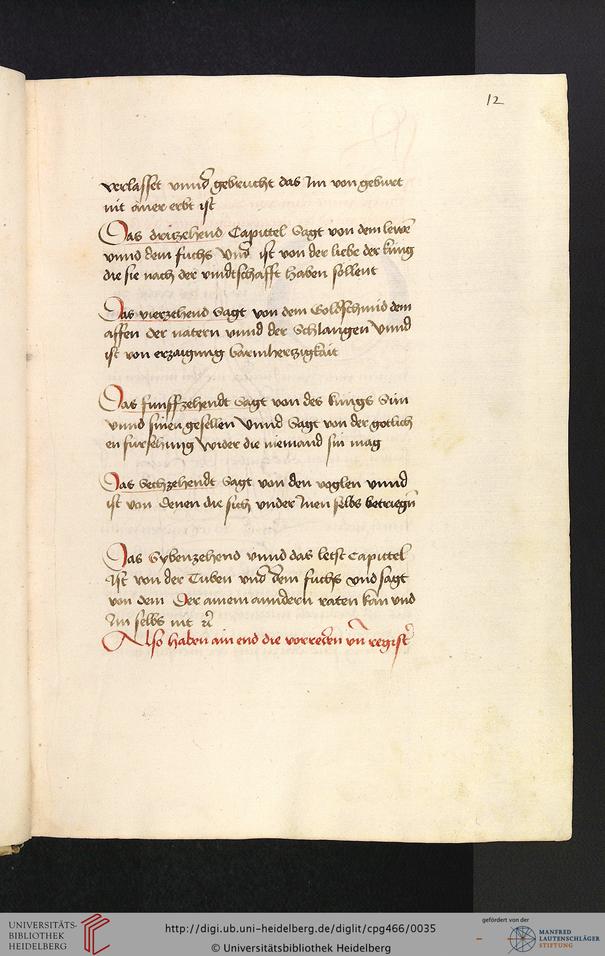 12
verlasset vnnd gebrucht das Im von geburt
nit aner erbt ist
Das dritzehend Capittel Sagt von dem lewen
vnnd dem fuchs Vnd ist von der liebe der kung
die sie nach der vindtschafft haben sollent
Das vierzehend Sagt von dem Goldschmid dem
affen der natern vnnd der Schlangen Vnnd
ist von erzaigung barmhertzigkait
Das funffzehendt Sagt von des kungs Sun
vnnd sinen gesellen Vnnd Sagt von der gotlich
en fursehung Wider die niemand sin mag
Das Sechzehendt Sagt von den voglen vnnd
ist von denen die sich vnder Inen selbs betriegn
Das Sybenzehend vnnd das letst Capittel
Ist von der Tuben vnd dem fuchs vnd sagt
von dem Der ainem anndern raten kan vnd
Im selbs nit
Also haben ain end die vorreden vn̄ regist
UNIVERSITÄTS-
BIBLIOTHEK
HEIDELBERG
http://digi.ub.uni-heidelberg.de/diglit/cpg466/0035
© Universitätsbibliothek Heidelberg
gefördert von der
MANFRED
LAUTENSCHLÄGER
STIFTUNG